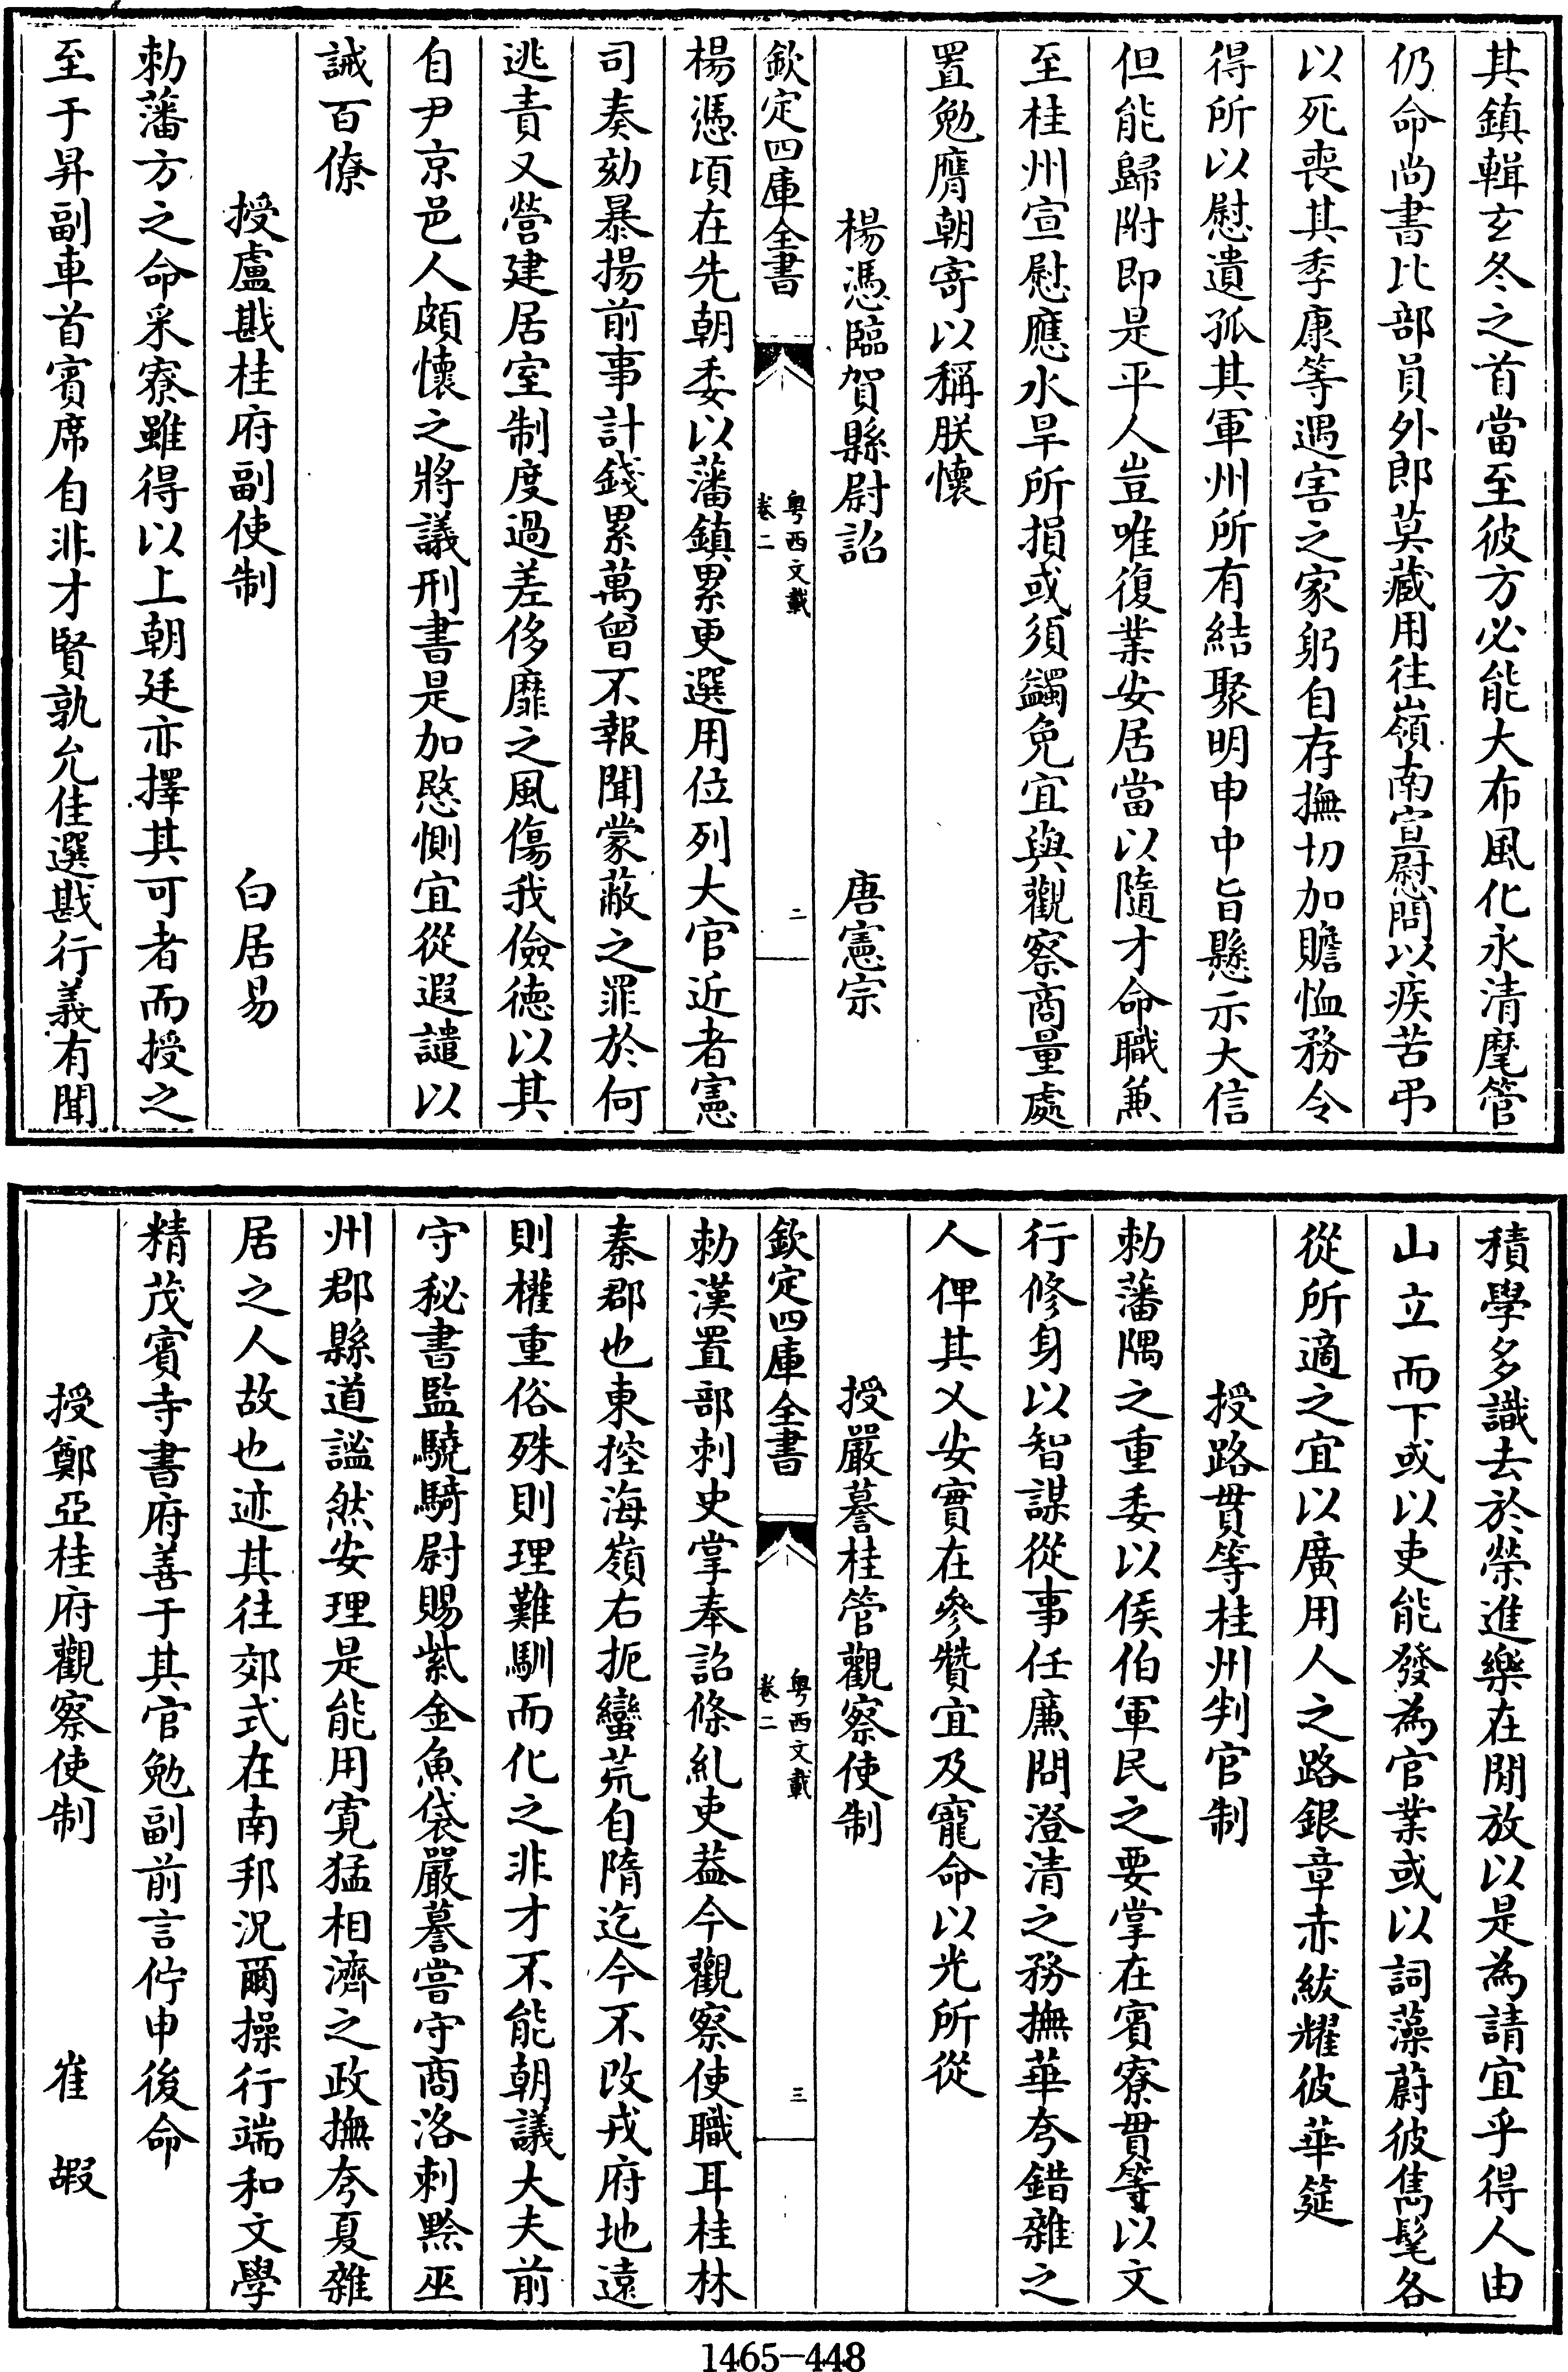 其鎮輯玄冬之首當至彼方必能大布風化永清麾管
仍命尚書比部員外郎莫藏用往嶺南宣慰問以疾苦弔
以死喪其季康等遇害之家躬自存撫切加贍恤務令
得所以慰遺孤其軍州所有結聚明申中旨懸示大信
但能歸附即是平人豈唯復業安居當以隨才命職兼
至桂州宣慰應水旱所損或須蠲免宜與觀察商量處
置勉膺朝寄以稱朕懷
楊憑臨賀縣尉詔　唐憲宗
欽定四庫全書　粤西文載卷二　二
楊憑頃在先朝委以藩鎮累更選用位列大官近者憲
司奏劾暴揚前事計錢累萬曾不報聞蒙蔽之罪於何
逃責又營建居室制度過差侈靡之風傷我儉德以其
自尹京邑人頗懷之將議刑書是加愍惻宜從遐譴以
誡百僚
授盧戡桂府副使制　白居易
勅藩方之命寀寮雖得以上朝廷亦擇其可者而授之
至于昇副車首賓席自非才賢孰允佳選戡行義有聞
積學多識去於榮進樂在閒放以是為請宜乎得人由
山立而下或以吏能發為官業或以詞藻蔚彼雋髦各
從所適之宜以廣用人之路銀章赤紱耀彼華筵
授路貫等桂州判官制
勅藩隅之重委以侯伯軍民之要掌在賓寮貫等以文
行修身以智謀從事任廉問澄清之務撫華夸錯雜之
人俾其乂安實在參贊宜及寵命以光所從
授嚴謩桂管觀察使制
欽定四庫全書　粤西文載卷二　三
勅漢置部刺史掌奉詔條糺吏葢今觀察使職耳桂林
秦郡也東控海嶺右扼蠻荒自隋迄今不改戎府地遠
則權重俗殊則理難馴而化之非才不能朝議大夫前
守秘書監驍騎尉賜紫金魚袋嚴謩嘗守商洛刺黔巫
州郡縣道謐然安理是能用寛猛相濟之政撫夸夏雜
居之人故也迹其往効式在南邦況爾操行端和文學
精茂賓寺書府善于其官勉副前言佇申後命
授鄭亞桂府觀察使制　崔嘏
1465-448